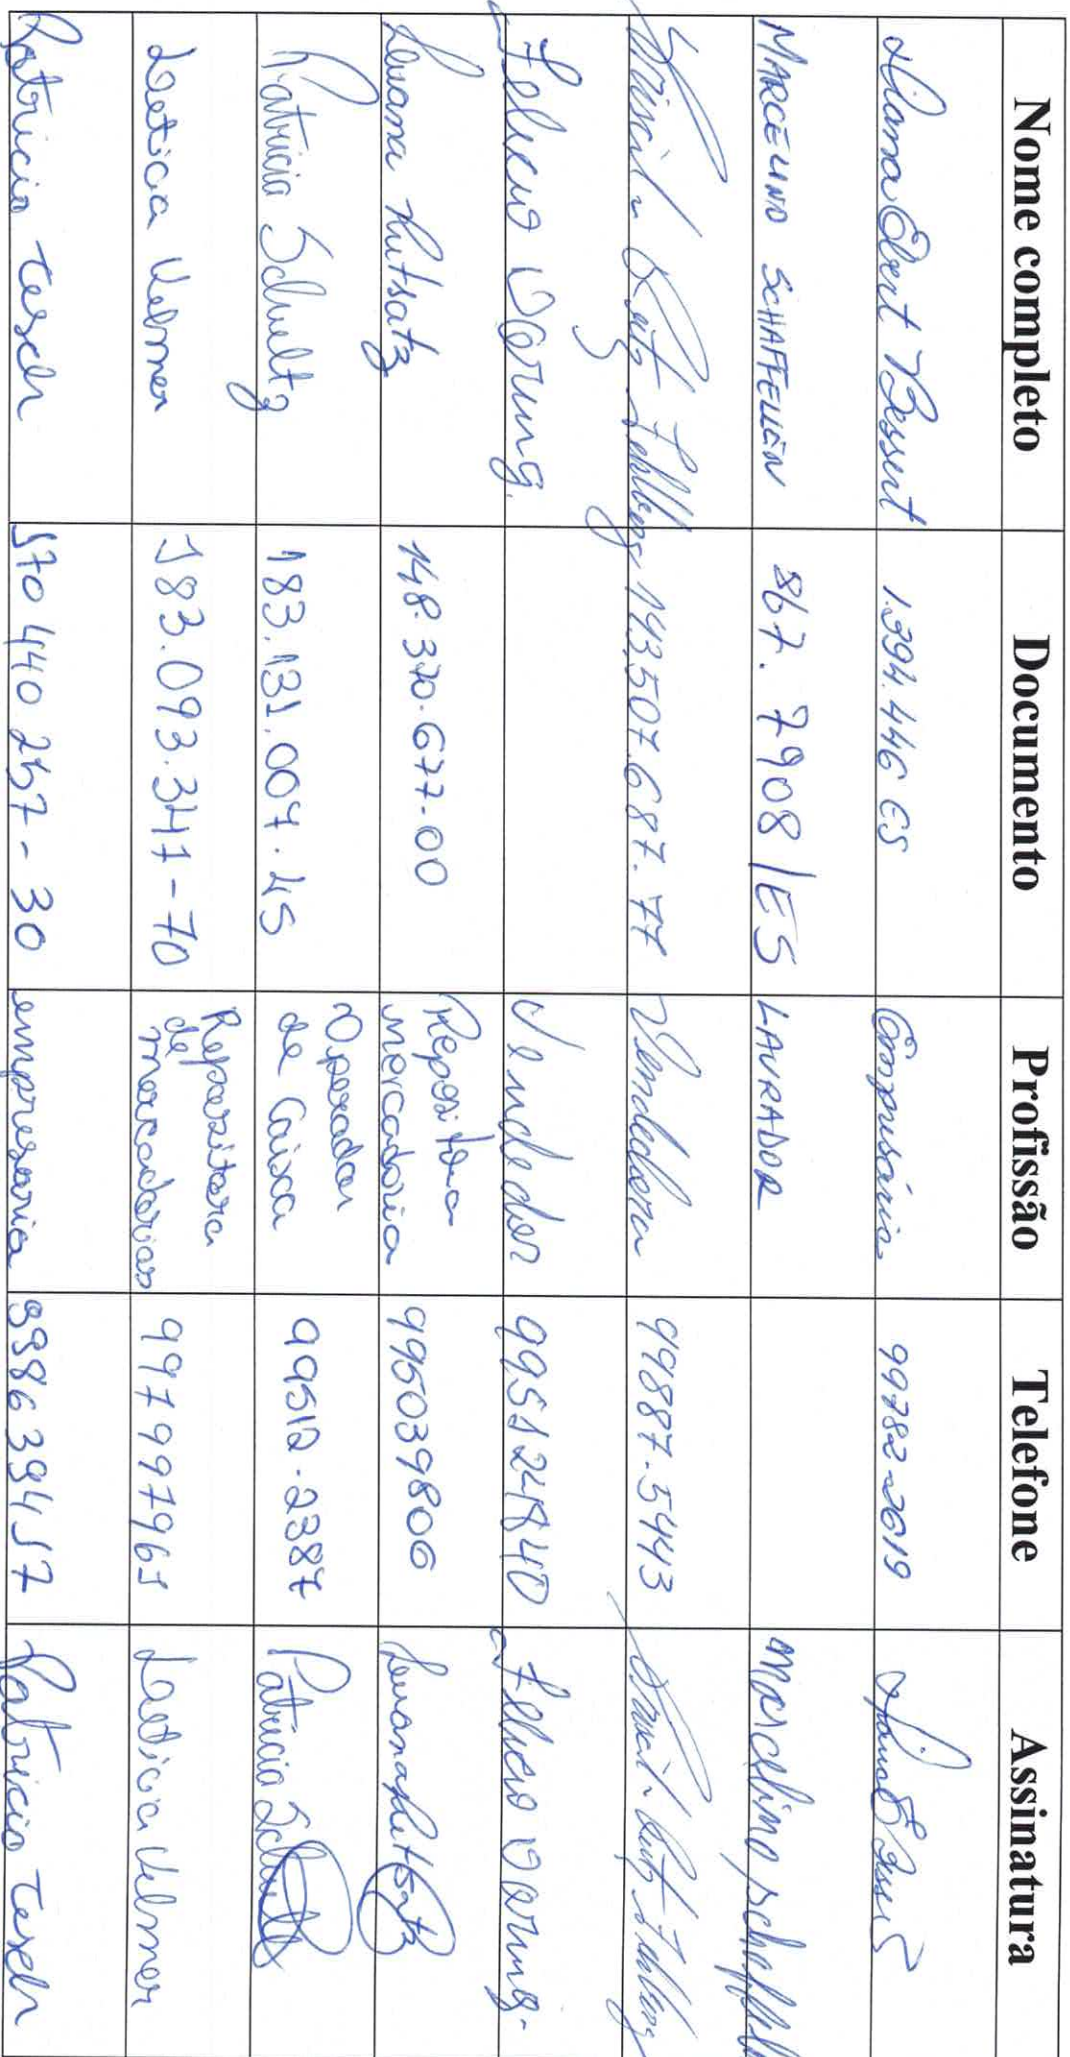 Nome completo Documento Profissão Telefone Assinatura
Ebert Bessert 1.394.446 ES Empresária 99782-2619
MARCELINO SCHAFFELLEN 867.7908/ES LAVRADOR Marcelino
143,507.687-77 Vendedora 99887-5443
Felicio Döring. Vendedor 995124840 Felicio Döring.
Luana Hutsatz 148.370.677-00 Repositora mercadoria 995039806
Patricia Schultz 183.131.007-45 Operador de Caixa 99512-2387 Patricia
Leticia Velmer 183.093.347-70 Repozitora de mercadorias 997997961 Leticia Velmer
Patricia Tesch 570 440 257-30 empresaria Patricia Tesch